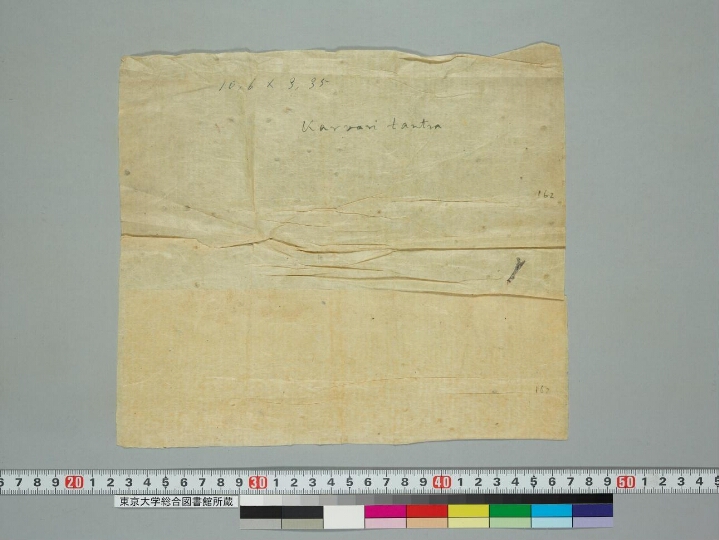 10.6 x 3.35
tantra
162
6 7 8 9 20 1 2 3 4 5 6 7 8 9 30 1 2 3 4 5 6 7 8 9 40 1 2 3 4 5 6 7 8 9 50 1 2 3 4 5
東京大学総合図書館所蔵